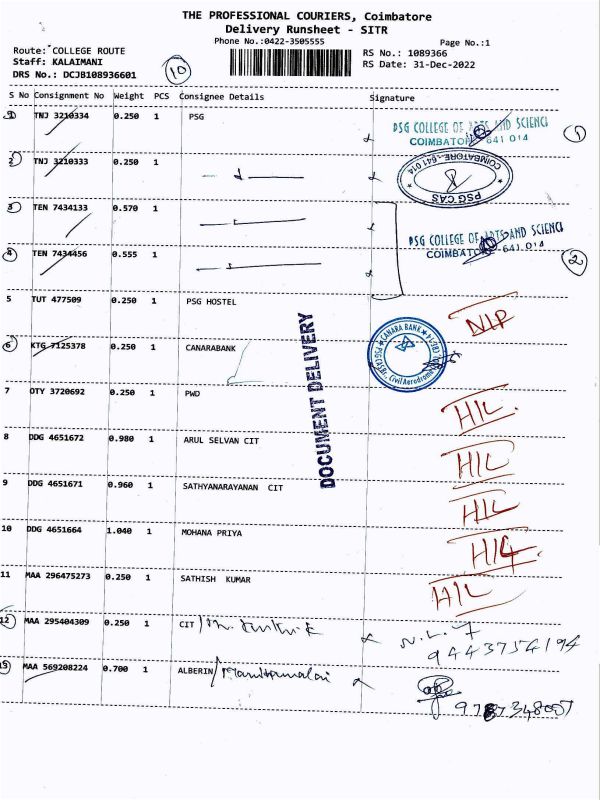 THE PROFESSIONAL COURIERS, Coimbatore
Delivery Runsheet - SITR
Phone No.:0422-3505555 Page No.:1
Route: COLLEGE ROUTE RS No.: 1089366
Staff: KALAIMANI RS Date: 31-Dec-2022
DRS No.: DCJB108936601 10
S No Consignment No Weight PCS Consignee Details Signature
1 TNJ 3210334 0.250 1 PSG
PSG COLLEGE OF ARTS AND SCIENCE 1
COIMBATORE - 641 014
2 TNJ 3210333 0.250 1
COIMBATORE - 641 014 PSG CAS
3 TEN 7434133 0.570 1
PSG COLLEGE OF ARTS AND SCIENCE
COIMBATORE - 641 014
4 TEN 7434456 0.555 1 2
5 TUT 477509 0.250 1 PSG HOSTEL NIP
6 KTG 7125378 0.250 1 CANARABANK
CANARA BANK Civil Aerodrome
DOCUMENT DELIVERY
7 OTY 3720692 0.250 1 PWD H/L
8 DDG 4651672 0.980 1 ARUL SELVAN CIT H/L
9 DDG 4651671 0.960 1 SATHYANARAYANAN CIT H/L
10 DDG 4651664 1.040 1 MOHANA PRIYA H/L
11 MAA 296475273 0.250 1 SATHISH KUMAR H/L
12 MAA 295404309 0.250 1 CIT
9443754194
13 MAA 569208224 0.700 1 ALBERIN